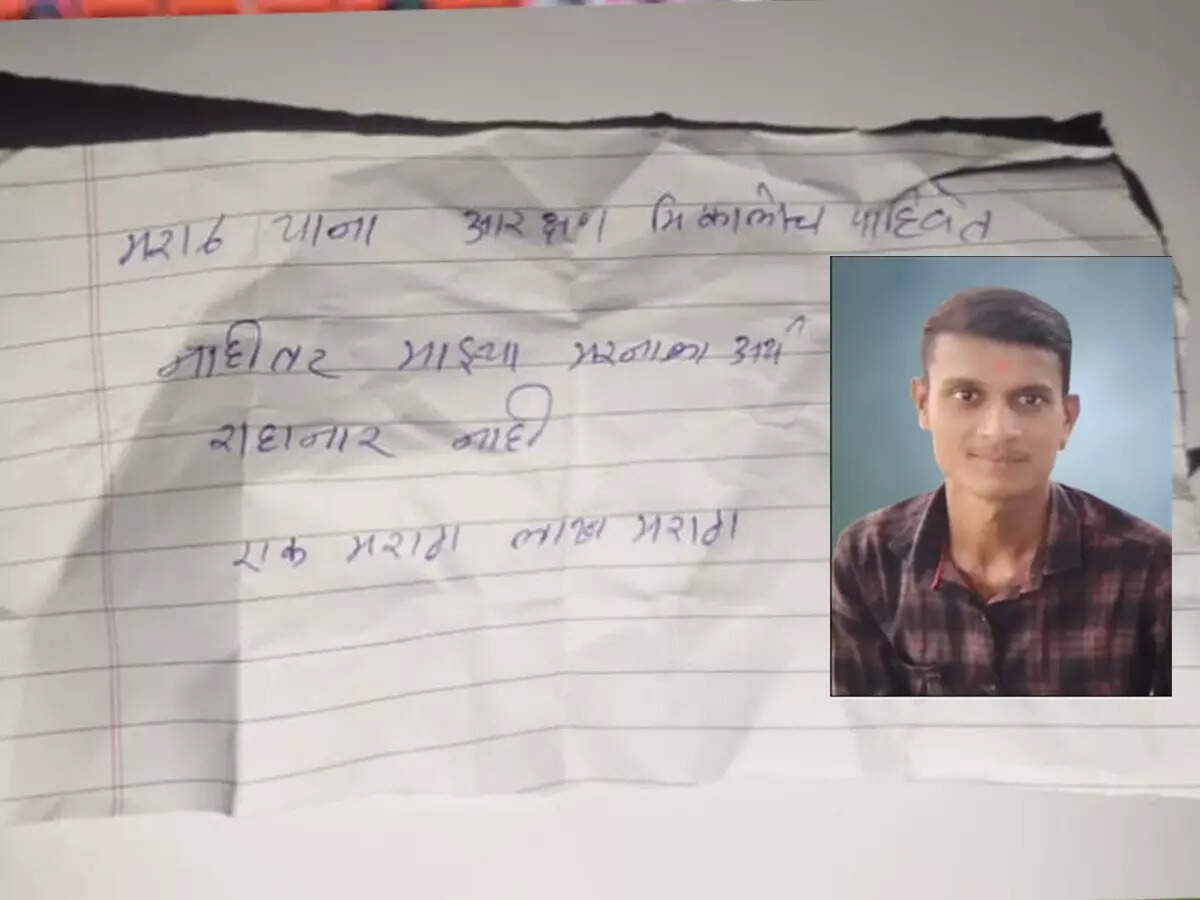 मराठ यांना आरक्षण मिळालेच पाहिजेत
नाहीतर माझ्या मरनाला अर्थ
राहानार नाही
एक मराठा लाख मराठा